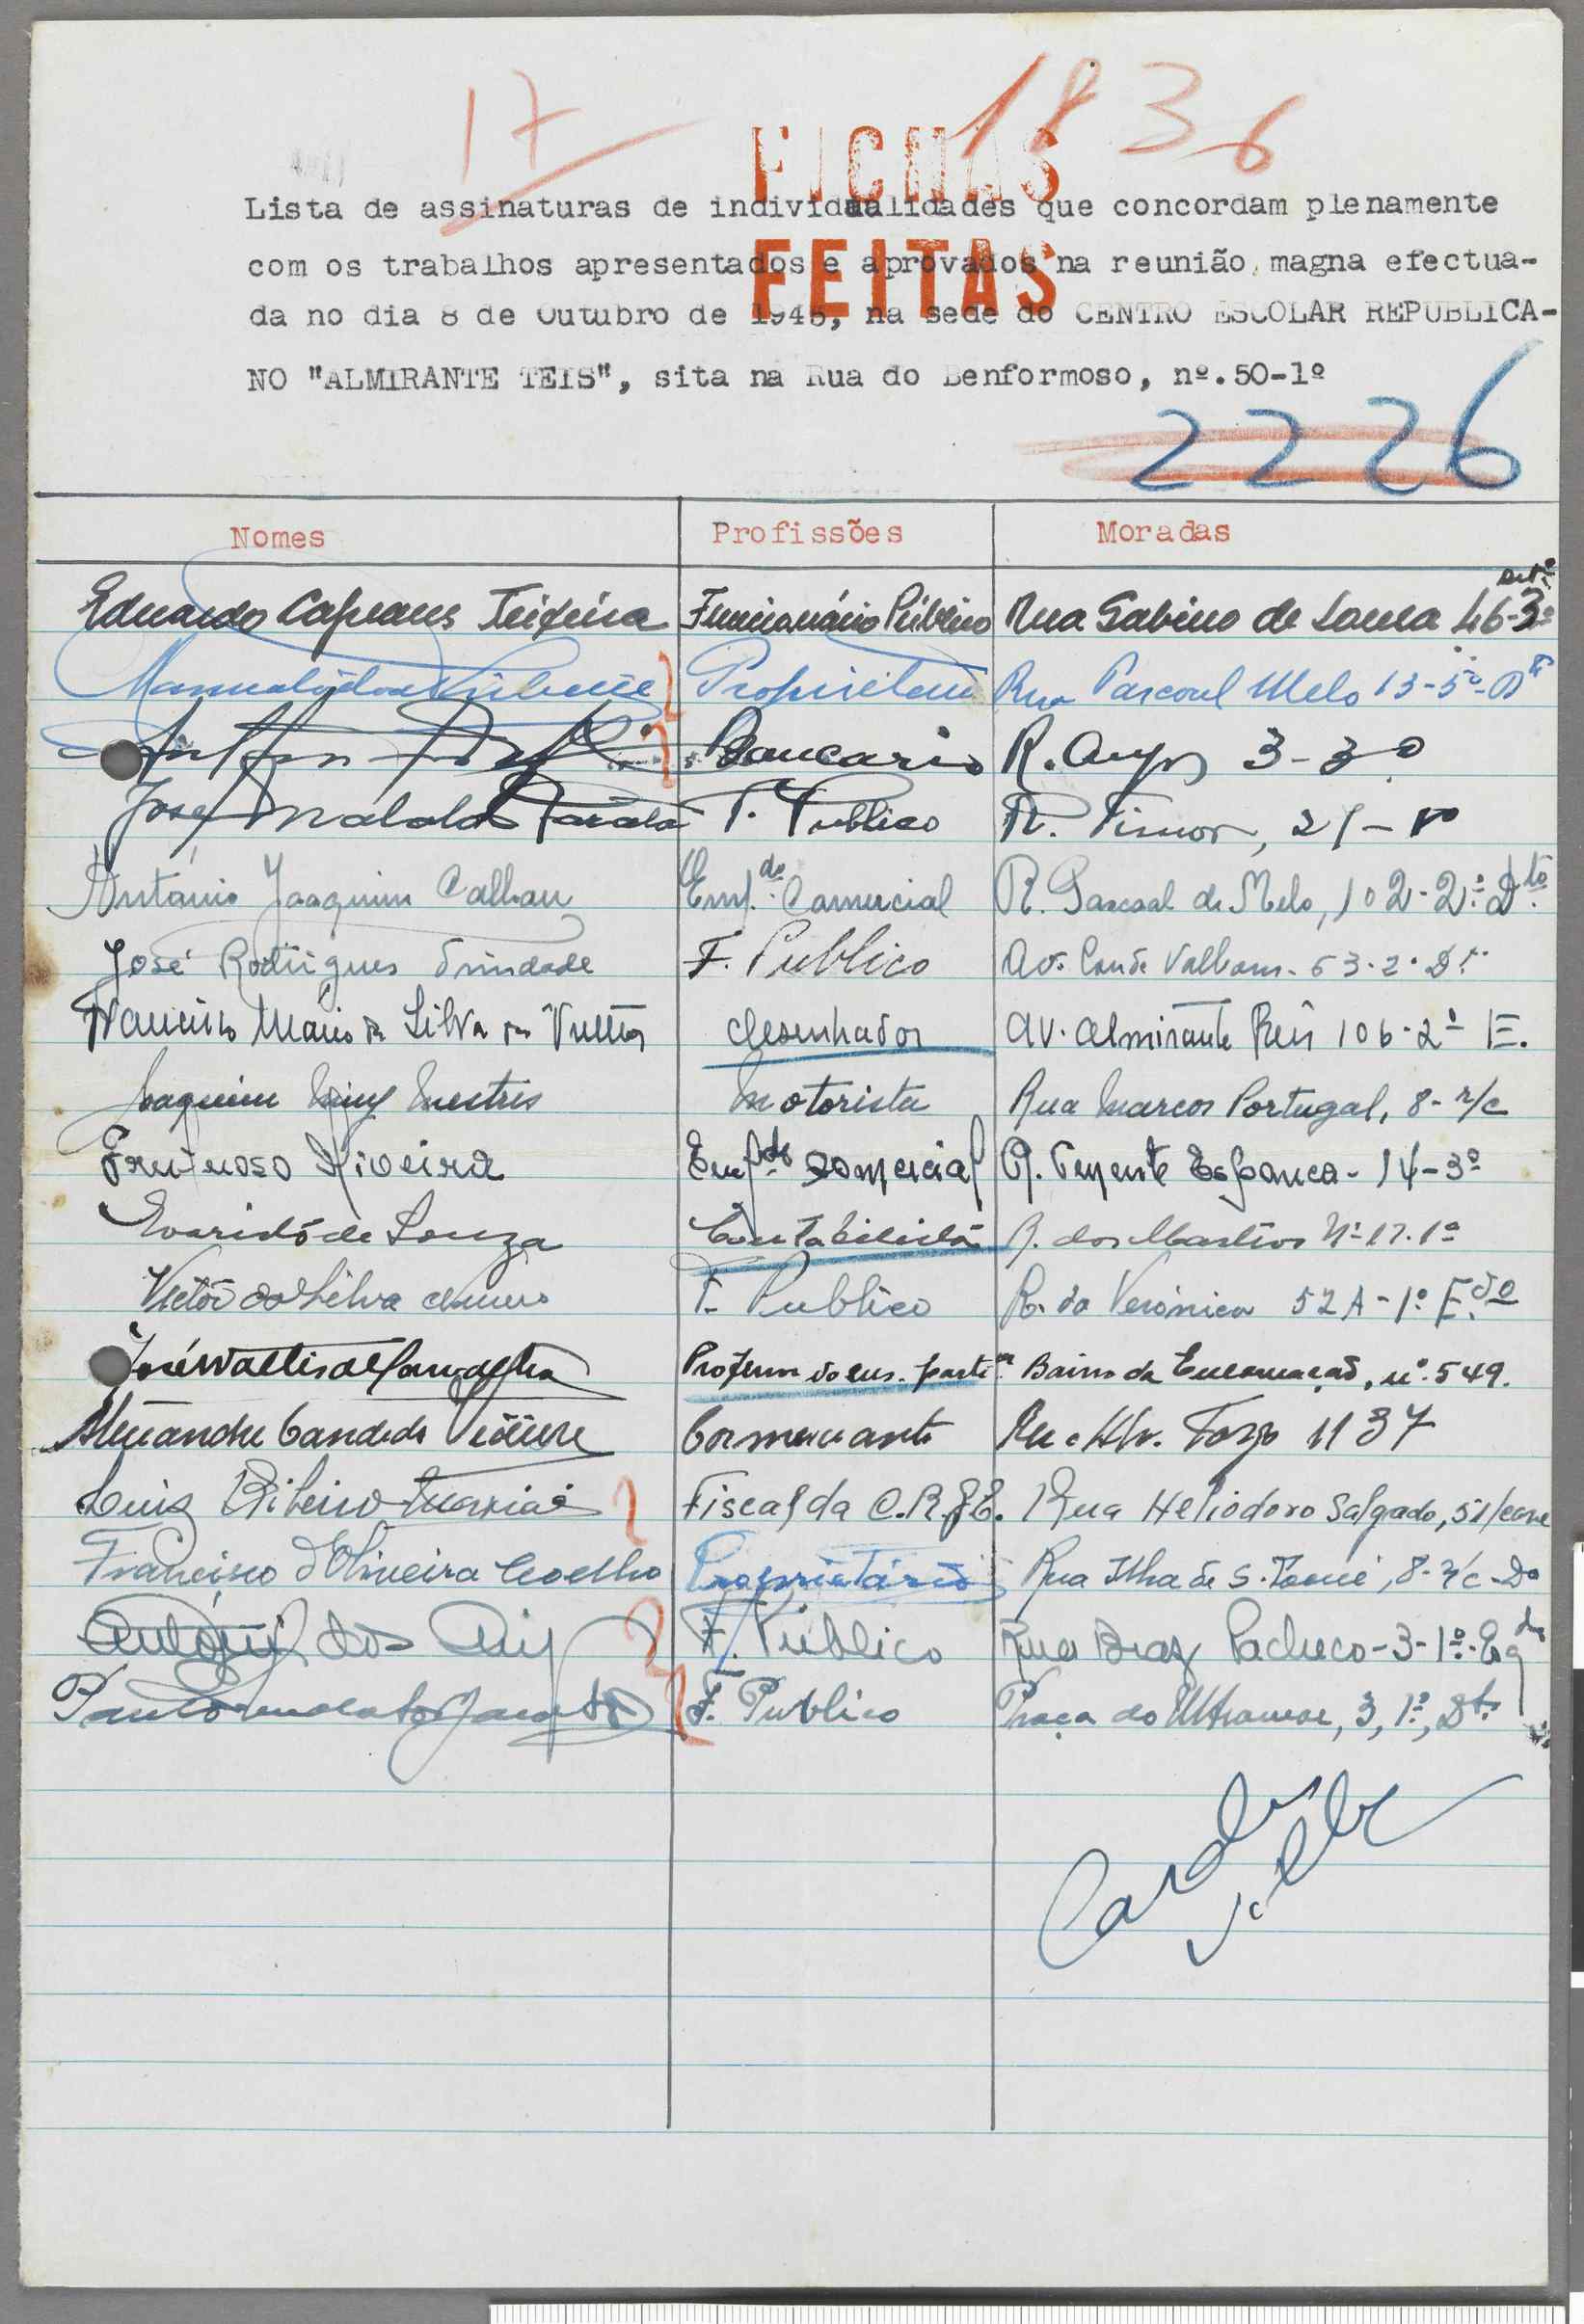 17
1836
FICHAS
FEITAS
Lista de assinaturas de individualidades que concordam plenamente
com os trabalhos apresentados e aprovados na reunião magna efectua-
da no dia 8 de Outubro de 1945, na sede do CENTRO ESCOLAR REPUBLICA-
NO "ALMIRANTE TEIS", sita na Rua do Benformoso, nº.50-1º
2226
Nomes Profissões Moradas
Eduardo Teixeira Funcionário Público Rua Sabino de Sousa 46-3º
Proprietario Rua Pascoal Melo 13-5º-Dto
Bancario R. 3-3º
José F. Publico R. Timor, 21-
António Joaquim Calhau Empdo. Comercial R. Pascoal de Melo, 102-2º Dto
José Rodrigues Trindade F. Publico Av. Conde Valbom. 63-2º Dto
Mário da Silva desenhador Av. Almirante Reis 106-2º E.
Joaquim Mestres Motorista Rua Marcos Portugal, 8-r/c
Frutuoso Empdo comercial R. Tenente Espanca-14-3º
Evaristo de Souza R. dos Nº 17.1º
Victor da Silva F. Publico R. da Verónica 52A-1º Edo
José Professor do ens. partic. Bairro da Encarnação, nº.549.
Candido Comerciante 1137
Luiz Ribeiro Fiscal da C.R.G.E. Rua Heliodoro Salgado, 51/cave
Francisco d'Oliveira Coelho Proprietário Rua Ilha de S. Tomé, 8-r/c-Do
António dos F. Público Rua Braz Pacheco-3-1º-Esqdo
F. Publico Praça do Ultramar, 3, 1º, Dto